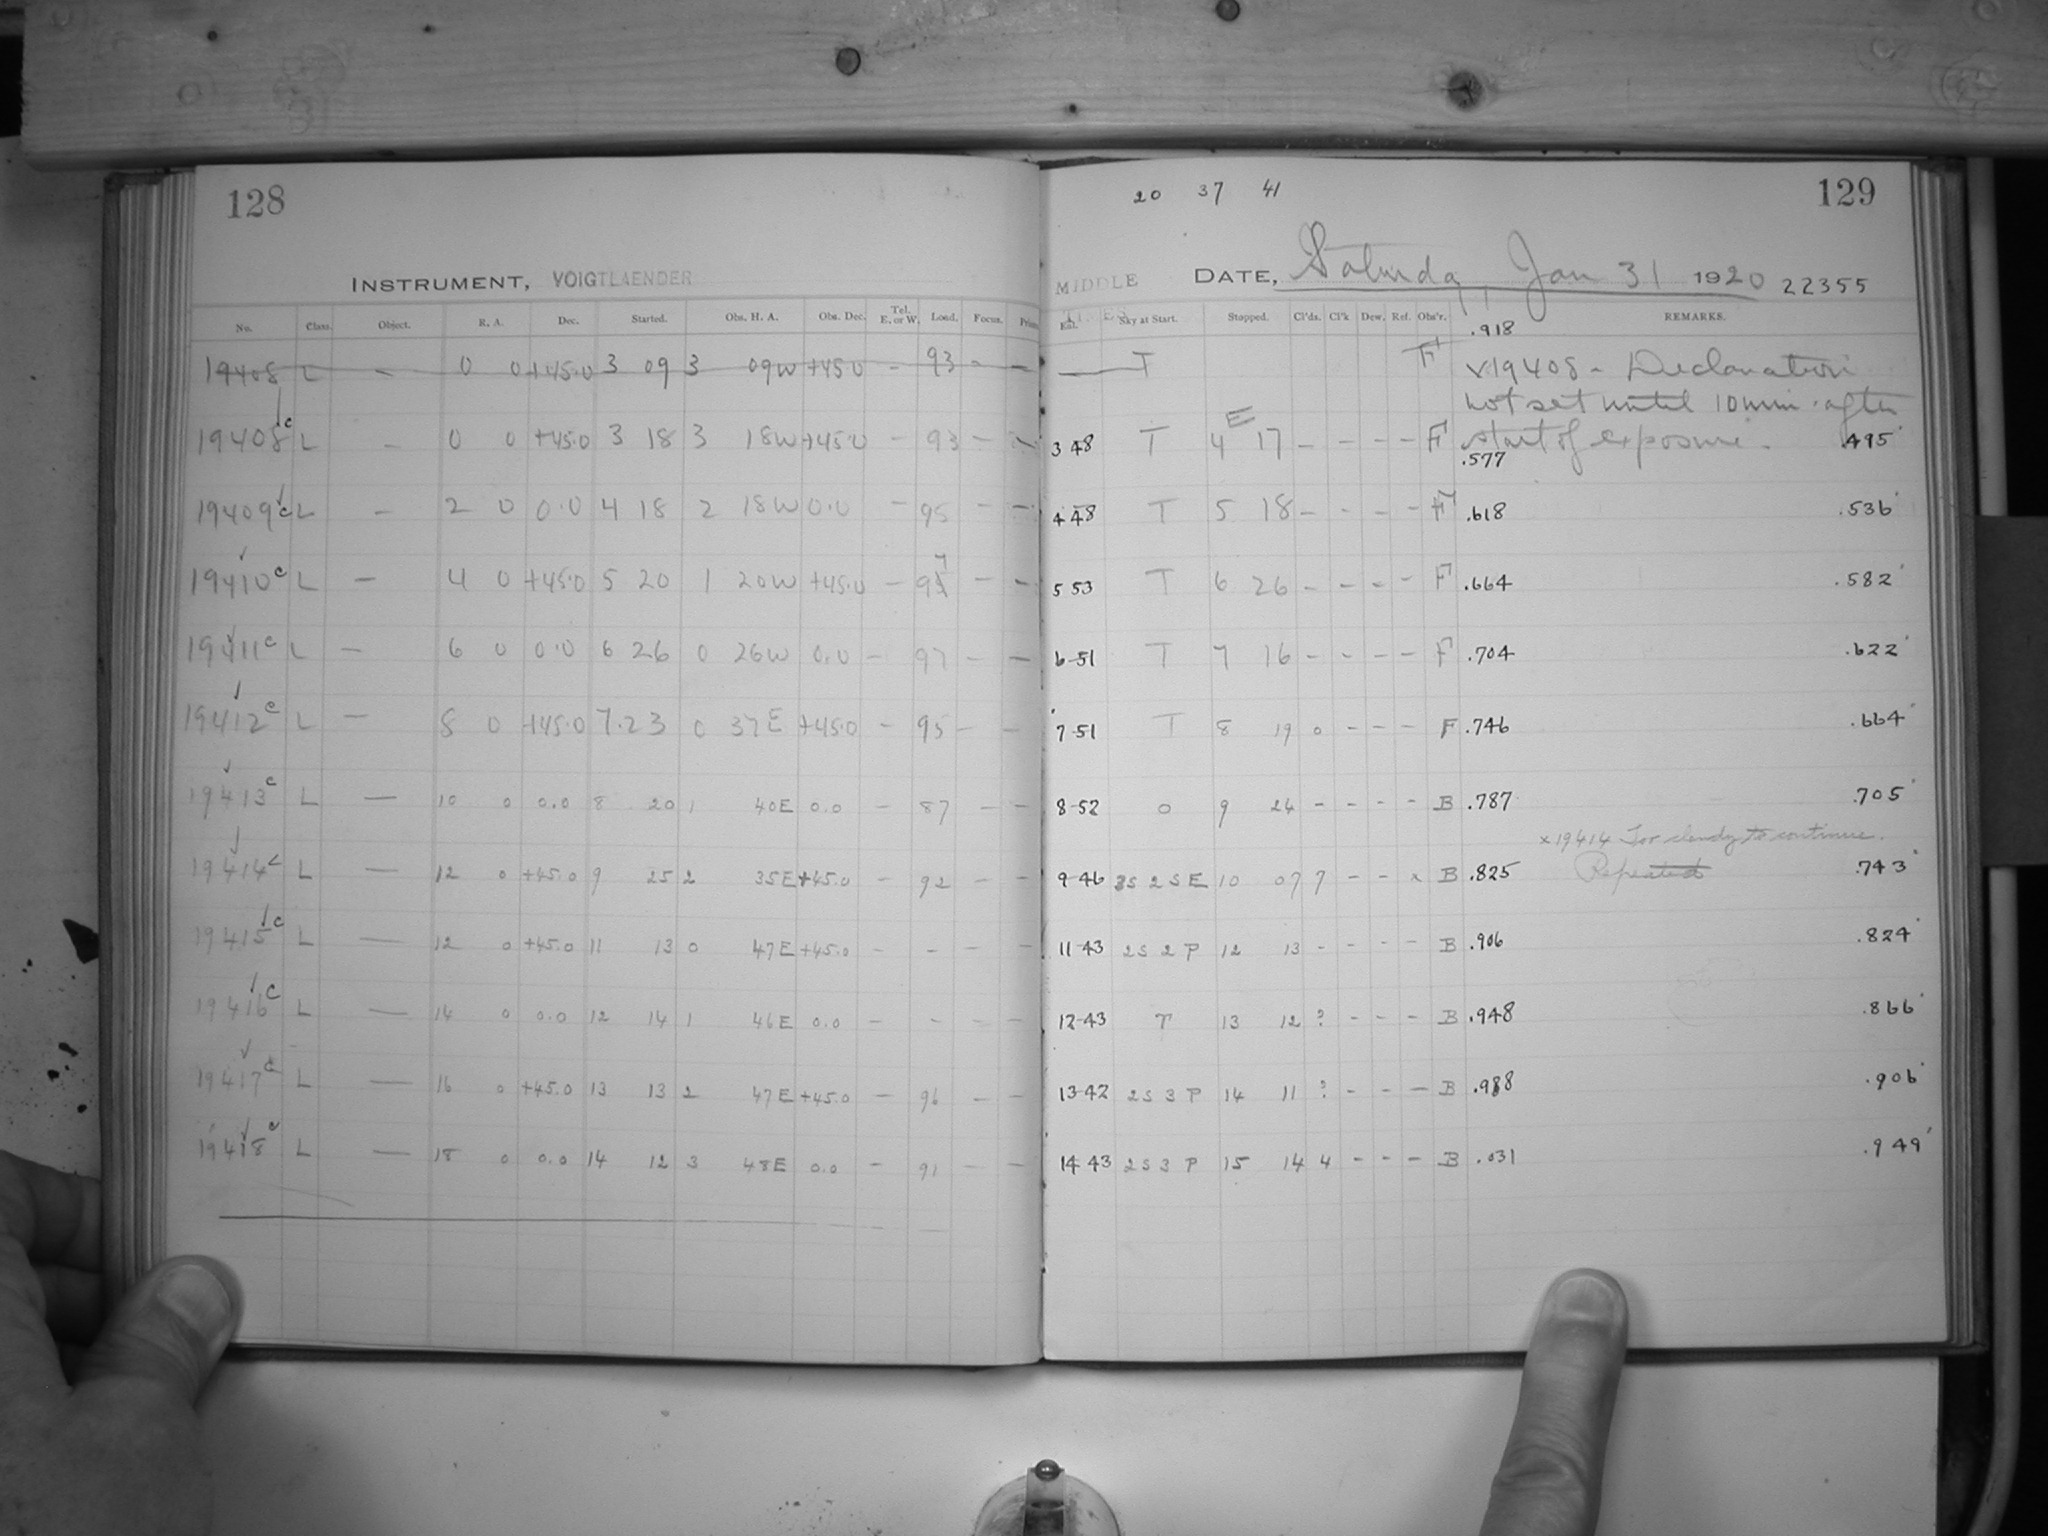 128
INSTRUMENT, VOIGTLAENDER
No. Class. Object. R. A. Dec. Started. Obs. H. A. Obs. Dec. Tel. E. or W. Load. Focus.
19408 L - 0 0 +45.0 3 09 3 09W +45.0 - 93 - -
19408c L - 0 0 +45.0 3 18 3 18W +45.0 - 93 - -
19409c L - 2 0 0.0 4 18 2 18W 0.0 - 95 - -
19410c L - 4 0 +45.0 5 20 1 20W +45.0 - 97 - -
19411c L - 6 0 0.0 6 26 0 26W 0.0 - 97 - -
19412c L - 8 0 +45.0 7.23 0 37E +45.0 - 95 - -
19413c L - 10 0 0.0 8 20 1 40E 0.0 - 87 - -
19414c L - 12 0 +45.0 9 25 2 35E +45.0 - 92 - -
19415c L - 12 0 +45.0 11 13 0 47E +45.0 - - - -
19416c L - 14 0 0.0 12 14 1 46E 0.0 - - - -
19417c L - 16 0 +45.0 13 13 2 47E +45.0 - 96 - -
19418c L - 18 0 0.0 14 12 3 48E 0.0 - 91 - -
20 37 41
129
MIDDLE TIMES
DATE, Saturday Jan 31 1920 22355
Sky at Start. Stopped. Cl'ds. Cl'k Dew. Ref. Obs'r. REMARKS.
.918
T F x19408 - Declination
not set until 10 min. after
3 48 T 4 E 17 - - - - F start of exposure. .495
.577
4 48 T 5 18 - - - - F .618 .536
5 53 T 6 26 - - - - F .664 .582
6-51 T 7 16 - - - - F .704 .622
7-51 T 8 19 0 - - - F .746 .664
8-52 0 9 24 - - - - B .787 .705
x19414 Too cloudy to continue.
9-46 3S 2S E 10 07 7 - - x B .825 Repeated .743
11-43 2S 2 P 12 13 - - - - B .906 .824
12-43 T 13 12 ? - - - B .948 .866
13-42 2S 3 P 14 11 ? - - - B .988 .906
14 43 2S 3 P 15 14 4 - - - B .031 .949